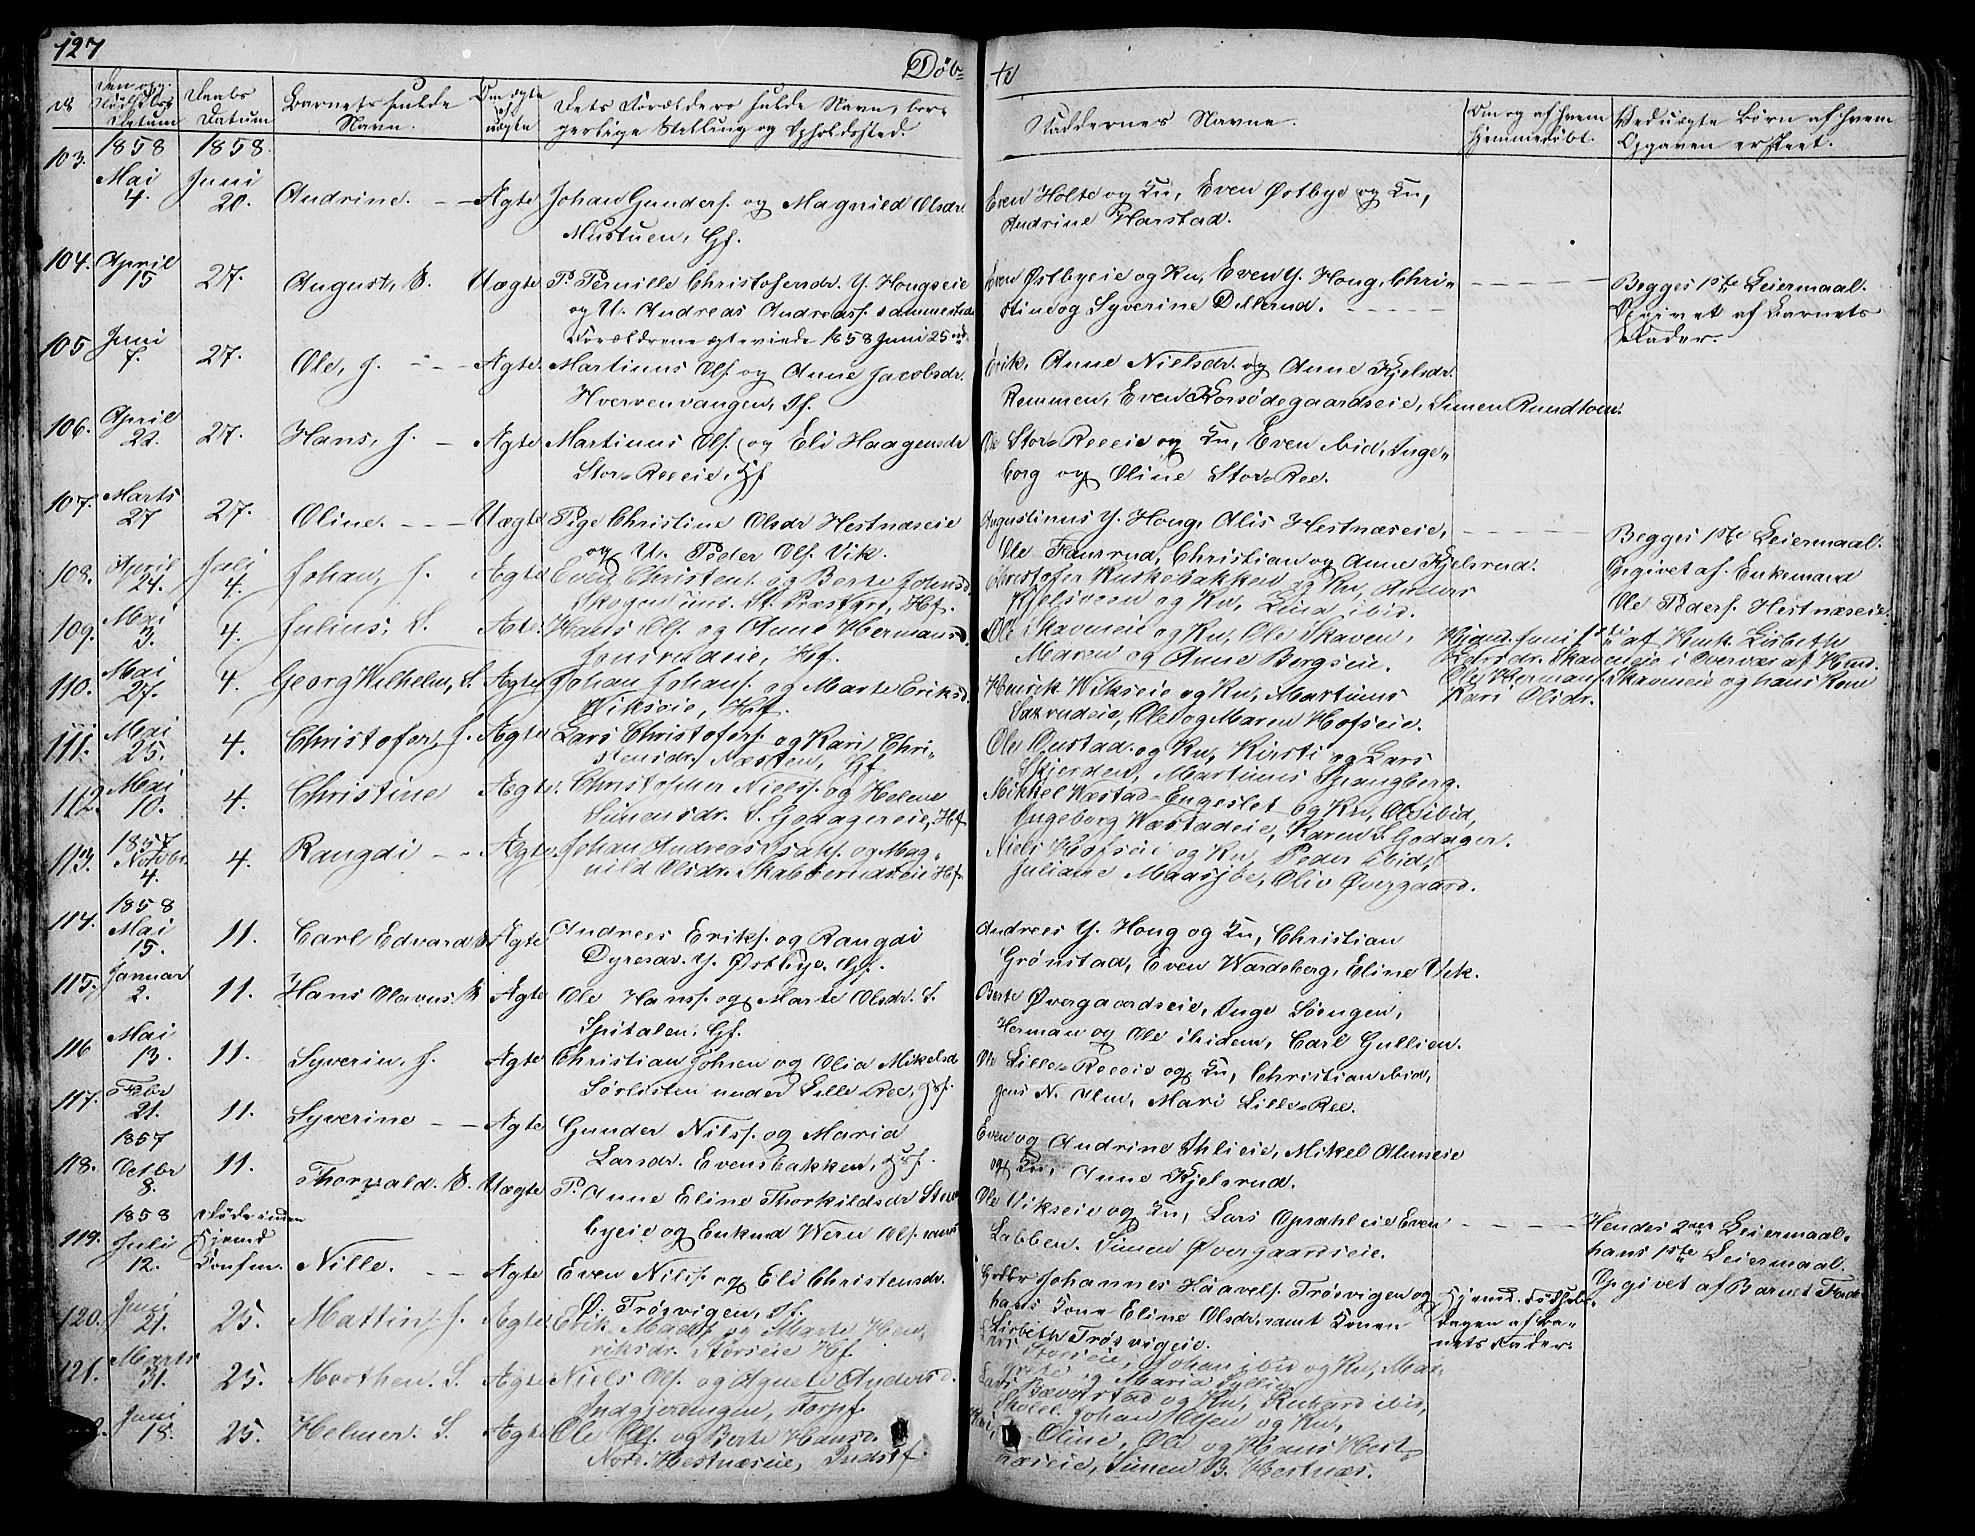 127
Døb-
te
№
Datum
Daabs Datum
Barnets fulde Navn.
Om ægte el. uægte
Dets Forældres fulde Navn, bor-
gerlige Stilling og Opholdssted.
Faddernes Navne.
Om og af hvem hjemmedøbt.
Ved uægte Børn af hvem Opgaven er skeet.
103. 1858 Mai 4. 1858 Juni 20. Andrine. Ægte Johan Gunders. og Magnild Olsdr.
Mustuen, Gf.
Even Holte og Kn, Even Østbye og Kn,
Andrine Harstad.
104. April 15 27. August, S. Uægte P. Pernille Christofersdr. Y. Hougseie
og U. Andreas Andreas. sammesteds
Forældrene ægteviede 1858 Juni 25
Even Østbyeeie og Kn, Even Y. Houg, Chri-
stine og Syverine Dillerud.
Begges 1ste Leiermaal.
Opgivet af Barnets
Fader.
105 Juni 7. 27. Ole, f. Ægte. Martinus Ols. og Anne Jacobsdr.
Hvervenvangen, Hf.
Erik, Anne Nielsdr. og Anne Kjelsdr.
Remmen, Even Korsødegaardseie, Simen Rundtoen.
106. April 22. 27. Hans, f. Ægte Martinus Ols. og Eli Haagensdr
Store Reeeie, Hf
Ole Store Reeeie og Kn, Even ibid, Inge-
borg og Oline Store Ree.
107. Marts 27 27. Oline. Uægte Pige Christine Olsdr Hestnæseie
og U. Peder Ols. Vik.
Augustinus Y. Houg, Alis Hestnæseie,
Ole Fausrud, Christian og Anne Kjelsrud.
Begges 1ste Leiermaal.
Opgivet af Enkemand
Ole Peders. Hestnæseie.
108. April 24. Juli 4. Johan, f. Ægte Even Christens. og Berte Johnsd.
Skogen und. St. Præstgrd, Hf.
Christofer Kuskebakken og Kn, Anders
Kjelsveen og Kn, Lina ibid.
109. Mai 3. 4. Julius, S. Ægte. Hans Ols. og Anne Hermans.
Jonsrudeie, Hf.
Ole Skaveneie og Kn, Ole Skaven,
Maren og Anne Borgseie.
Hjemd. Juni af Henk. Lisbeth
Larsdr. Skaveneie i Overvær af Husd.
Ole Hermans. Skaveneie og hans Kone
Kari Olsdr.
110. Mai 27. 4. Georg Wilhelm, S. Ægte Johan Johans. og Marte Eriksd.
Vikseie, Hf.
Henrik Wikseie og Kn, Martinus
Saxrudeie, Ole og Maren Hofseie.
111. Mai 25. 4. Christofer, f. Ægte Lars Christofers. og Kari Chri-
stensdr. Næsten, Gf
Ole Onstad og Kn, Kirsti og Lars
Skjerden, Martinus Spangberg.
112. Mai 10. 4. Christine Ægte. Christopher Nielss. og Helene
Simensdr. S. Godagereie, Hf
Mikkel Wæstad-Engeslet og Kn, Ole ibid,
Ingeborg Wæstadeie, Karen S. Godager.
113. 1857 Novbr. 4. 4. Rangdi Ægte. Johan Andreas Isaks. og Mag-
nild Olsdr. Skabberudseie Hf.
Niels Hofseie og Kn, Peder ibid,
Juliane Maasjøe, Oliv Øvergaard.
114. 1858 Mai 15. 11. Carl Edvard S. Ægte Andreas Eriks. og Rangdi
Dyresdr. Y. Østbye. Gf.
Andreas Y. Houg og Kn, Christian
Grønstad, Even Wardeberg, Eline Vik.
115. Januar 2. 11. Hans Olavus S Ægte Ole Hanss. og Marte Olsdr. S.
Spitalen, Gf.
Berte Øvergaardseie, Inge Løengen,
Herman og Ole ibidem, Carl Gullien.
116 Mai 13. 11. Syverin, f. Ægte Christian Johnsen og Olia Mikelsd
Sørlisten under Lille Ree, Hf.
Ole Lille-Reeeie og Kn, Christian ibid,
Jens N. Alm, Mari Lille-Ree.
117. Febr 21. 11. Syverine Ægte Gunder Nilss. og Maria
Larsdr. Evensbakken, Hf.
Even og Andrine Ihlieie, Mikel Almseie
og Kn, Anne Kjelsrud.
118. 1857 Octbr 8. 11. Thorvald. S. Uægte P. Anne Eline Thorkildsdr
byeie og Enkmd Wern Ols.
Ole Vikseie og Kn, Lars Opsahleie Even
Labben. Simen Øvergaardseie.
Hendes 2den Leiermaal.
hans 1ste Leiermaal.
Opgivet af Barnets Fader
119. 1858 Juli 12. Døde inden Hjemd Konfm. Nille. Ægte Even Nilss. og Eli Christensdr.
Ø. Trøsvigen, St.
Johannes Haavels. Trøsvigen og
hans Kone Eline Olsdr. samt Konen
Lisbeth Trøsvigeie.
Hjemd. Fødsels-
dagen af Bar-
nets Fader.
120. Juni 21. 25. Mattin, f. Ægte Erik Mads. og Marte Hen-
riksdr. Størseie Hf.
Lars Størseie, Johan ibid og Kn, Mar-
grete og Maria Lyllie
121. Marts 31. 25. Morthen. S. Ægte Niels Ols. og Agnete Andersd.
Indgjerengen, Torpf.
Lars Bæverstad og Kn, Richard ibid,
Johan Olsen og Kn,
Juni 18. 25. Helmer. S. Ægte Ole Ols. og Berte Hansd.
Nord. Hestnæseie, Indstf.
Oline, Ole og Hans Hest-
næseie, Simen B. Hestnæs.